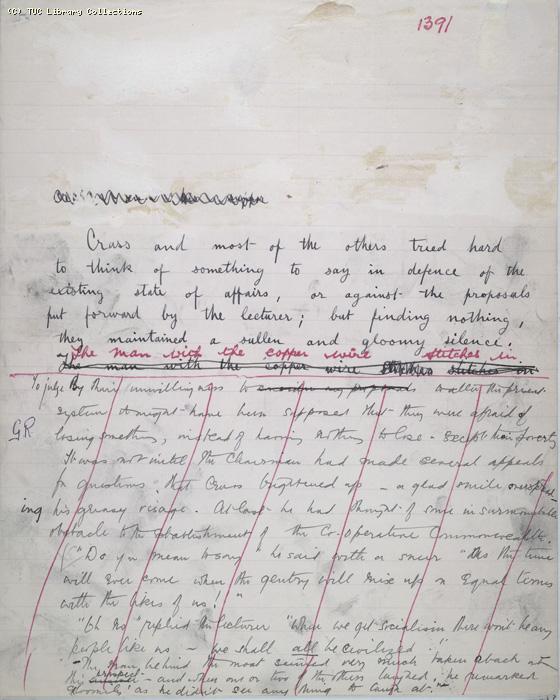 (C) TUC Library Collections
1391
Crass and most of the others tried hard
to think of something to say in defence of the
existing state of affairs, or against the proposals
put forward by the lecturer; but finding nothing,
they maintained a sullen and gloomy silence.
The man with the copper wire stitches in
The man with the copper wire stitches in
To judge by their unwillingness to consider any proposals to alter the present
system it might have been supposed that they were afraid of
GR
losing something, instead of having nothing to lose - except their poverty
It was not until the Chairman had made several appeals
for questions that Crass brightened up - a glad smile overspread
ing his greasy visage. At last he had thought of some insurmountable
obstacle to the establishment of the Co-operative Commonwealth.
"Do yu mean to say" he said with a sneer "that the time
will ever come when the gentry will mix up on Equal terms
with the likes of us!"
"Oh no" replied the lecturer "When we get socialism there won't be any
people like us - we shall all be civilized!"
The man behind the moat seemed very much taken aback at
this prospect - and when one or two of the others laughed, he remarked
gloomily as he didn't see anything to laugh at."